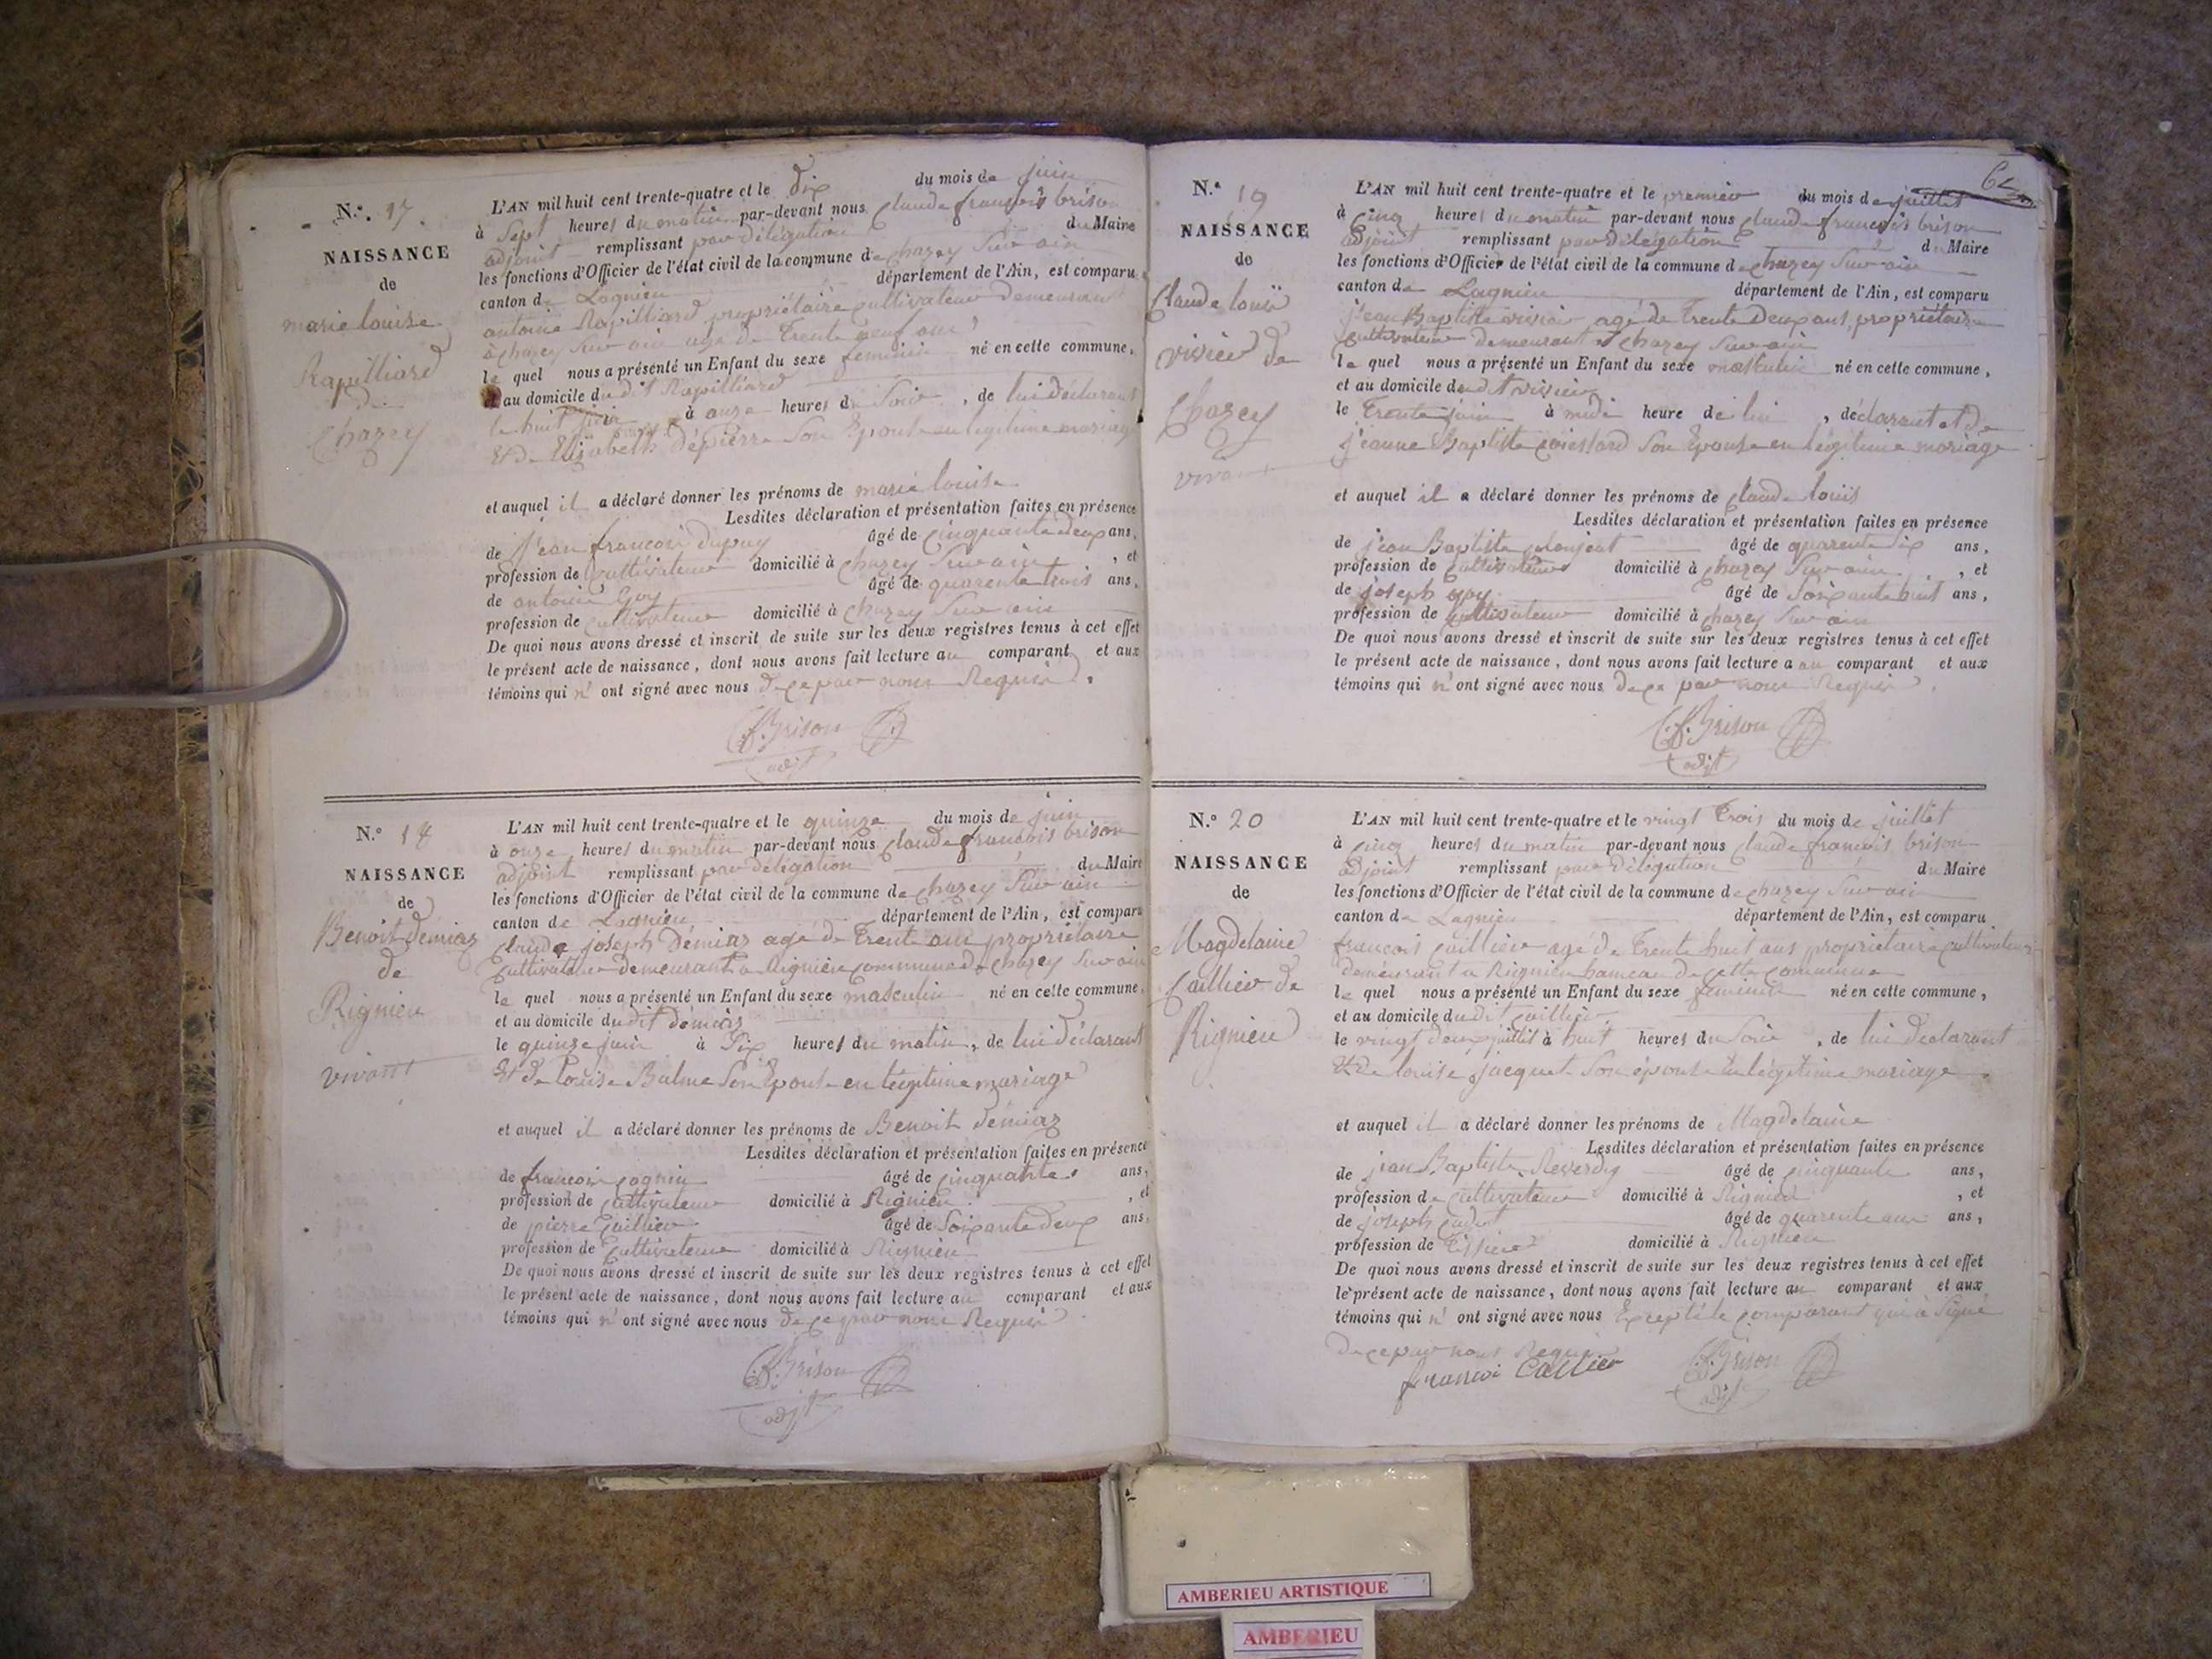 N.º 17
NAISSANCE
de
marie louise
Rapilliard
de
Chazey
L'AN mil huit cent trente-quatre et le dix du mois de juin
à Sept heures du matin par-devant nous Claude françois brison
adjoint remplissant par délégation du Maire
les fonctions d'Officier de l'état civil de la commune de chazey Sur ain
canton de Lagnieu département de l'Ain, est comparu
antoine Rapilliard propriétaire cultivateur demeurant
à chazey Sur ain agé de Trente neuf ans
le quel nous a présenté un Enfant du sexe feminin né en cette commune,
et au domicile dudit Rapilliard
le huit juin à onze heures du Soir, de lui déclarant
Et de Elisabeth Dépierre Son Epouse en légitime mariage
et auquel il a déclaré donner les prénoms de marie louise
Lesdites déclaration et présentation faites en présence
de jean françois dupuy âgé de cinquante deux ans,
profession de cultivateur domicilié à chazey Sur ain, et
de antoine Goy âgé de quarente trois ans,
profession de cultivateur domicilié à chazey Sur ain
De quoi nous avons dressé et inscrit de suite sur les deux registres tenus à cet effet
le présent acte de naissance, dont nous avons fait lecture au comparant et aux
témoins qui n'ont signé avec nous de ce par nous Requis.
C.f. Brison
adjt
N.º 18
NAISSANCE
de
Benoit démiaz
de
Rignieu
vivant
L'AN mil huit cent trente-quatre et le quinze du mois de juin
à onze heures du matin par-devant nous Claude françois brison
adjoint remplissant par délégation du Maire
les fonctions d'Officier de l'état civil de la commune de chazey Sur ain
canton de Lagnieu département de l'Ain, est comparu
Claude joseph Démiaz agé de Trente ans propriétaire
Cultivateur demeurant a Rignieu commune de chazey Sur ain
le quel nous a présenté un Enfant du sexe masculin né en cette commune,
et au domicile dudit démiaz
le quinze juin à Six heures du matin, de lui déclarant
Et de Louise Balme Son Epouse en légitime mariage
et auquel il a déclaré donner les prénoms de Benoit démiaz
Lesdites déclaration et présentation faites en présence
de françois cognin âgé de cinquante ans,
profession de cultivateur domicilié à Rignieu, et
de pierre Caillier âgé de Soixante deux ans,
profession de Cultivateur domicilié à Rignieu
De quoi nous avons dressé et inscrit de suite sur les deux registres tenus à cet effet
le présent acte de naissance, dont nous avons fait lecture au comparant et aux
témoins qui n'ont signé avec nous de ce par nous Requis
C.f. Brison
adjt
N.º 19
NAISSANCE
de
Claude louis
vivier de
Chazey
vivant
L'AN mil huit cent trente-quatre et le premier du mois de juillet
à cinq heures du matin par-devant nous Claude françois brison
adjoint remplissant par délégation du Maire
les fonctions d'Officier de l'état civil de la commune de chazey Sur ain
canton de Lagnieu département de l'Ain, est comparu
jean Baptiste vivier agé de Trente Deux ans, propriétaire
Cultivateur demeurant à Chazey Sur ain
le quel nous a présenté un Enfant du sexe masculin né en cette commune,
et au domicile dudit vivier
le Trente juin à midi heure de lui, déclarant et de
jeanne Baptiste Son Epouse en légitime mariage
et auquel il a déclaré donner les prénoms de claude louis
Lesdites déclaration et présentation faites en présence
de jean Baptiste âgé de quarente Six ans,
profession de Cultivateur domicilié à chazey Sur ain, et
de joseph goy âgé de Soixante huit ans,
profession de Cultivateur domicilié à chazey Sur ain
De quoi nous avons dressé et inscrit de suite sur les deux registres tenus à cet effet
le présent acte de naissance, dont nous avons fait lecture a au comparant et aux
témoins qui n'ont signé avec nous de ce par nous Requis.
C.f. Brison
adjt
N.º 20
NAISSANCE
de
Magdelaine
Caillier de
Rignieu
L'AN mil huit cent trente-quatre et le vingt Trois du mois de juillet
à cinq heures du matin par-devant nous Claude françois brison
adjoint remplissant par délégation du Maire
les fonctions d'Officier de l'état civil de la commune de chazey Sur ain
canton de Lagnieu département de l'Ain, est comparu
françois Caillier agé de Trente huit ans propriétaire Cultivateur
demeurant a Rignieu hameau de cette commune
le quel nous a présenté un Enfant du sexe feminin né en cette commune,
et au domicile dudit caillier
le vingt deux juillet à huit heures du Soir, de lui déclarant
Et de louise jacquet Son épouse en légitime mariage.
et auquel il a déclaré donner les prénoms de Magdelaine
Lesdites déclaration et présentation faites en présence
de jean Baptiste Reverdy âgé de cinquante ans,
profession de Cultivateur domicilié à Rignieu, et
de joseph âgé de quarente ans,
profession de Tissier domicilié à Rignieu
De quoi nous avons dressé et inscrit de suite sur les deux registres tenus à cet effet
le présent acte de naissance, dont nous avons fait lecture au comparant et aux
témoins qui n'ont signé avec nous Excepté le comparant qui à Signé
de ce par nous Requis
françoi Callier C.f. Brison
adjt
AMBERIEU ARTISTIQUE
AMBERIEU